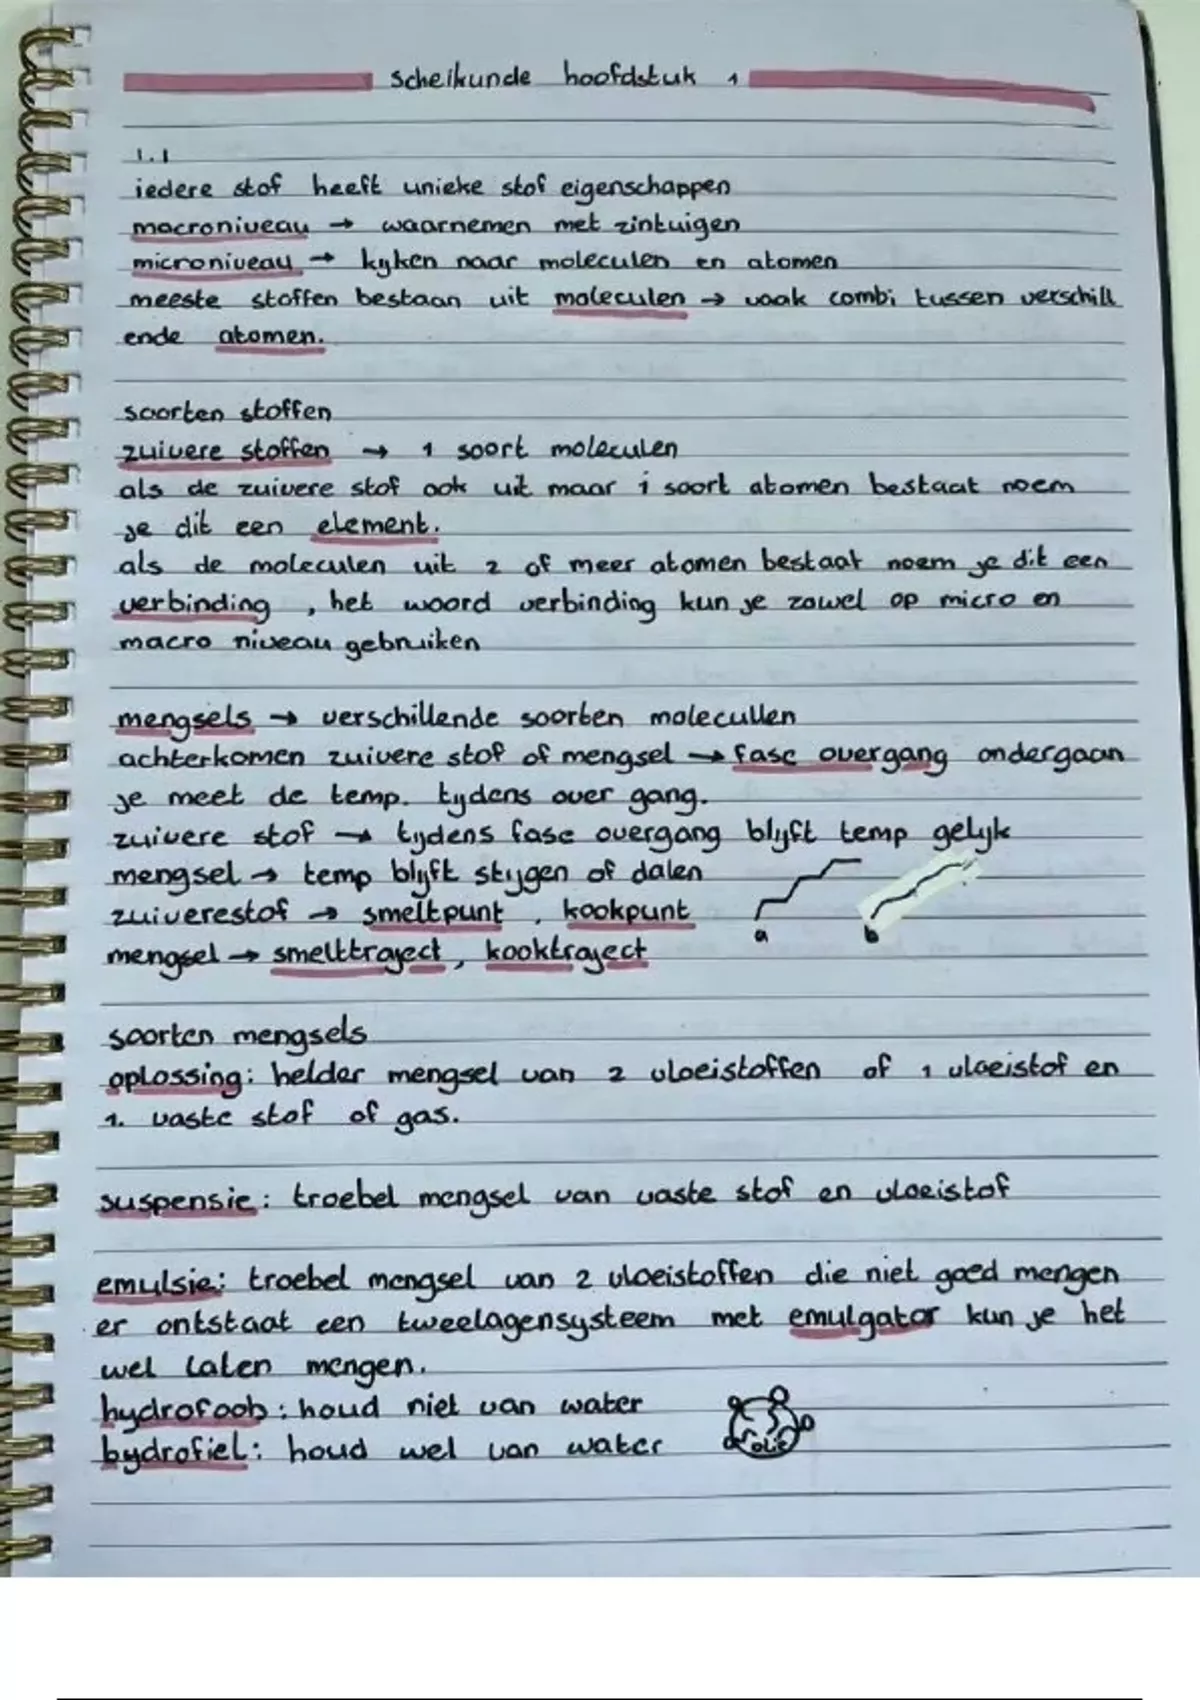 scheikunde hoofdstuk 1
1.1
iedere stof heeft unieke stof eigenschappen
macroniveau → waarnemen met zintuigen
microniveau → kijken naar moleculen en atomen
meeste stoffen bestaan uit moleculen → vaak combi tussen verschill
ende atomen.
soorten stoffen
zuivere stoffen → 1 soort moleculen
als de zuivere stof ook uit maar 1 soort atomen bestaat noem
je dit een element.
als de moleculen uit 2 of meer atomen bestaat noem je dit een
verbinding , het woord verbinding kun je zowel op micro en
macro niveau gebruiken
mengsels → verschillende soorten molecullen
achterkomen zuivere stof of mengsel → fase overgang ondergaan
je meet de temp. tijdens over gang.
zuivere stof → tijdens fase overgang blijft temp gelijk
mengsel → temp blijft stijgen of dalen
zuiverestof → smeltpunt , kookpunt
a b
mengsel → smelttraject , kooktraject
soorten mengsels
oplossing: helder mengsel van 2 vloeistoffen of 1 vloeistof en
1. vaste stof of gas.
suspensie: troebel mengsel van vaste stof en vloeistof
emulsie: troebel mengsel van 2 vloeistoffen die niet goed mengen
er ontstaat een tweelagensysteem met emulgator kun je het
wel laten mengen.
hydrofoob: houd niet van water
hydrofiel: houd wel van water
olie